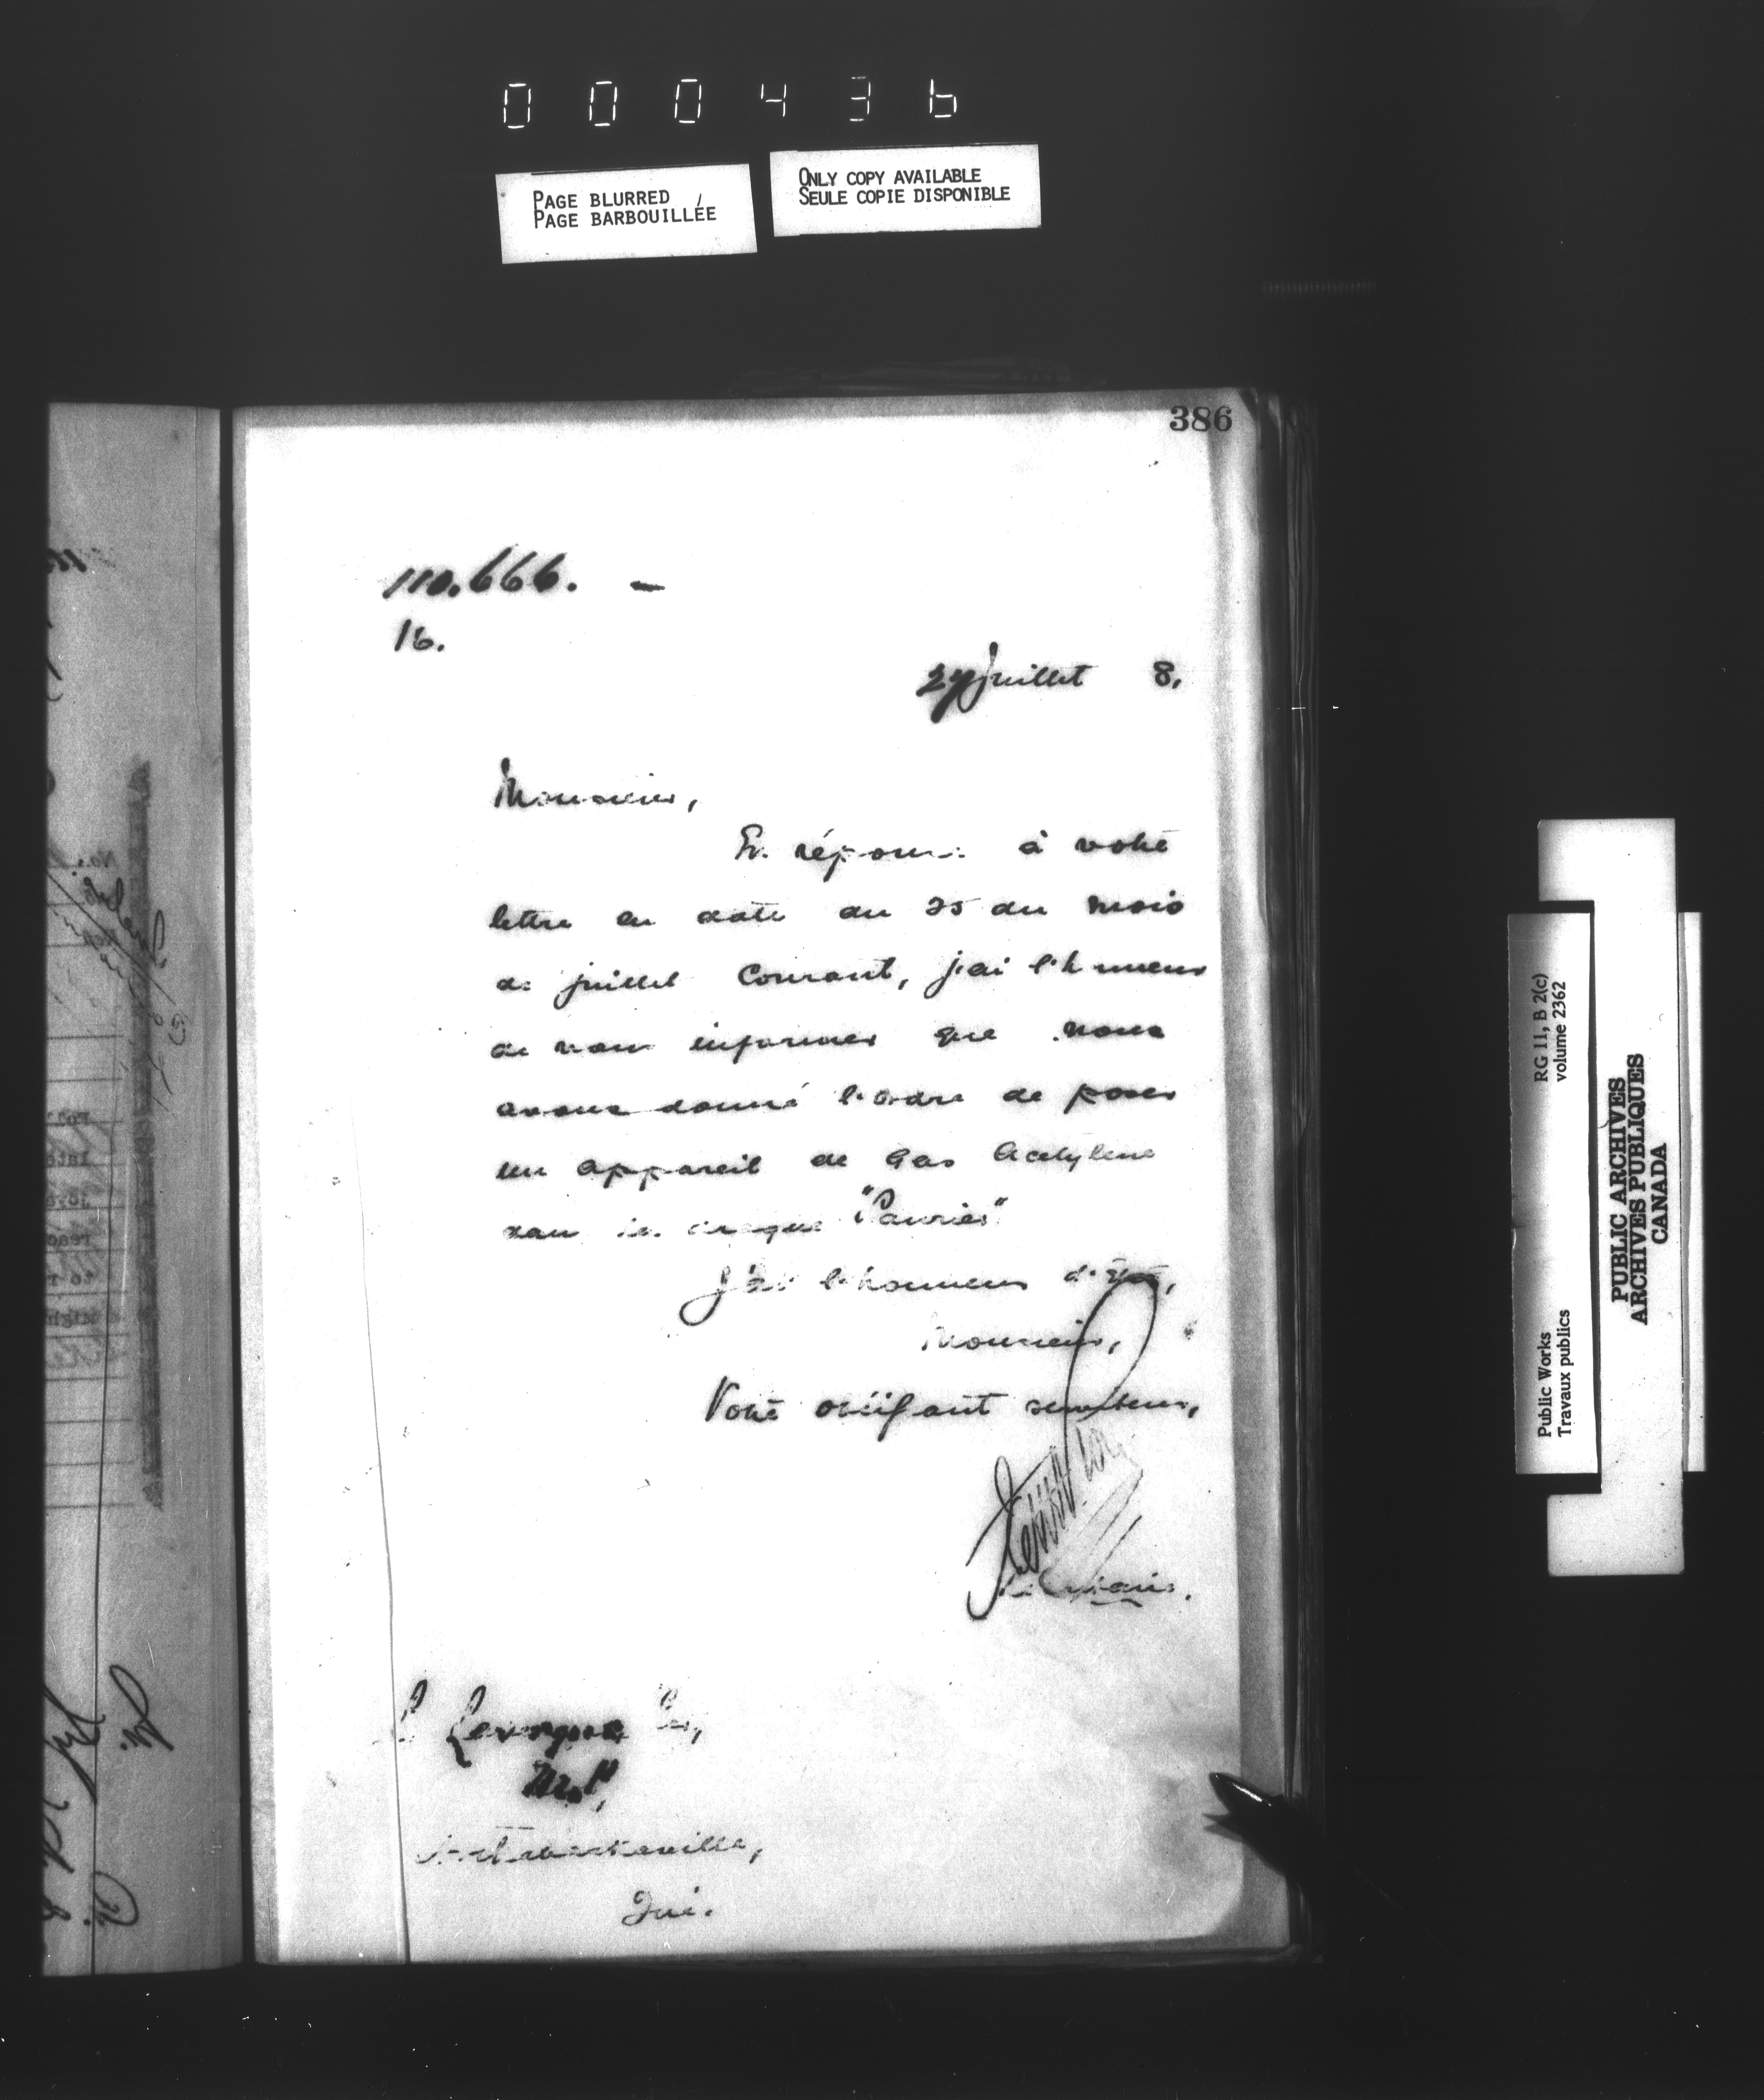 000436
PAGE BLURRED
PAGE BARBOUILLÉE
ONLY COPY AVAILABLE
SEULE COPIE DISPONIBLE
386
110.666. -
16.
27 juillet 8.
Monsieur,
En réponse à votre
lettre en date du 25 du mois
de juillet courant, j'ai l'honneur
de vous informer que nous
avons donné l'ordre de poser
un appareil de Gas Acetylene
dans le
J'ai l'honneur d'être,
Monsieur,
Votre obéissant serviteur,
Arthabaskaville,
Qué.
RG 11, B 2(c)
volume 2362
Public Works
Travaux publics
PUBLIC ARCHIVES
ARCHIVES PUBLIQUES
CANADA